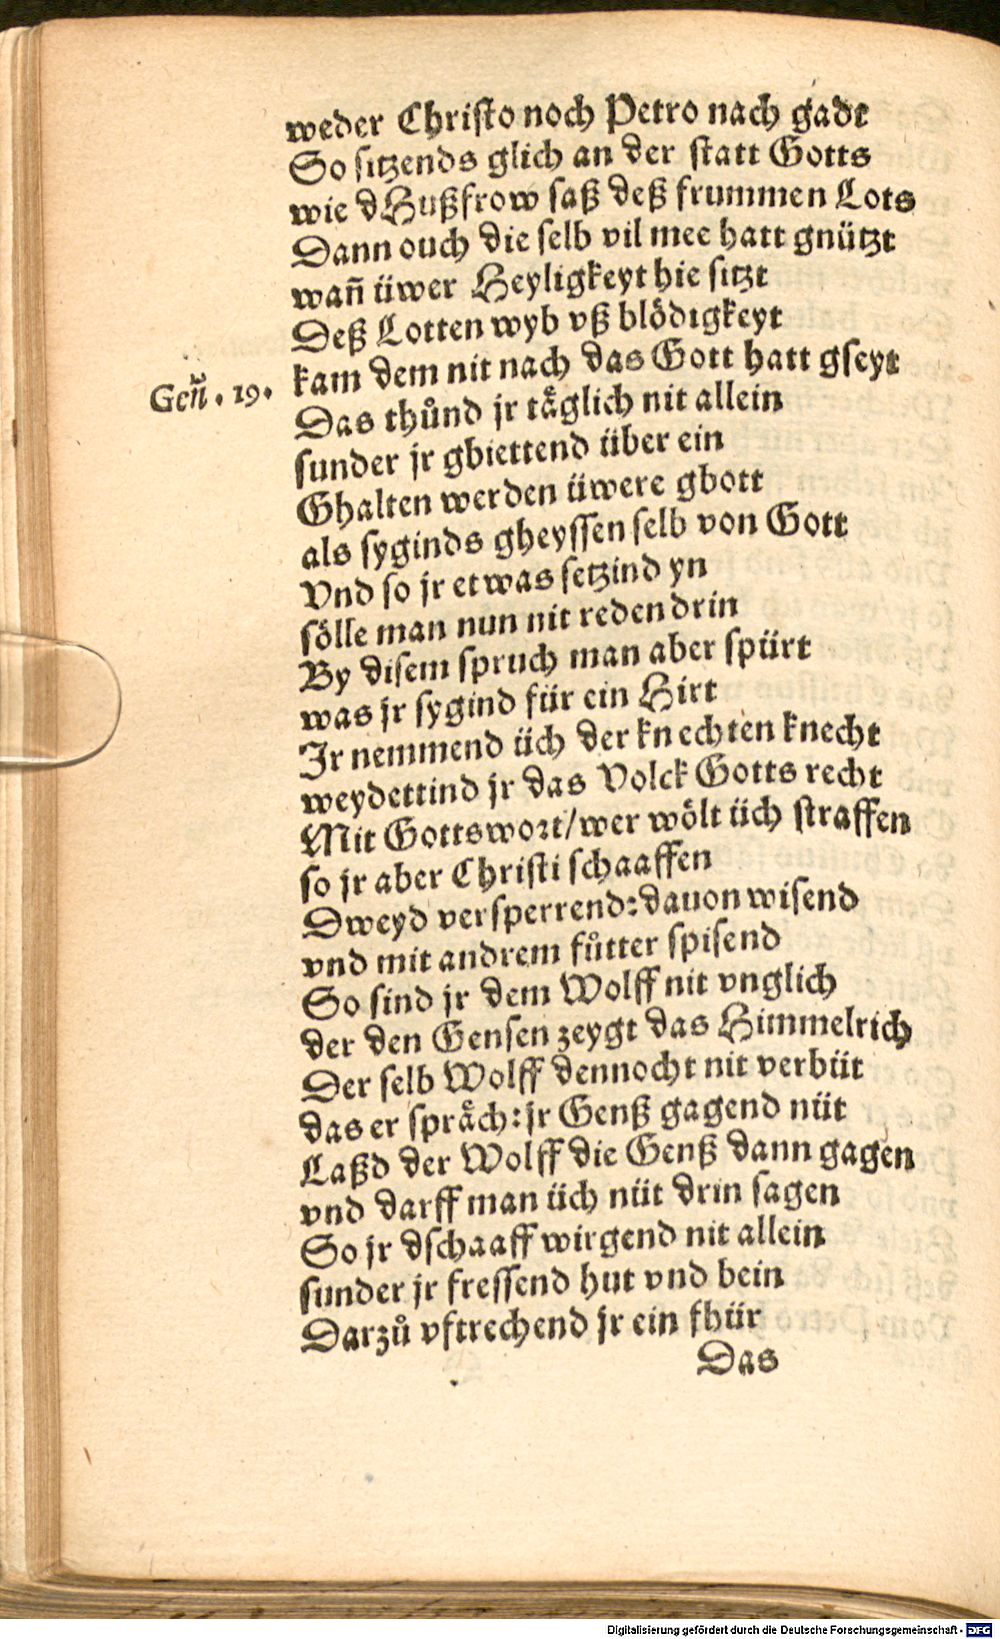 weder Chriſto noch Petro nach gadt
So ſitzends glich an der ſtatt Gotts
wie dHußfrow ſaß deß frummen Lots
Dann ouch die ſelb vil mee hatt gnützt
wañ üwer Heyligkeyt hie ſitzt
Deß Lotten wyb vß blödigkeyt
Geñ. 19. kam dem nit nach das Gott hatt gſeyt
Das thůnd jr taͤglich nit allein
ſunder jr gbiettend über ein
Ghalten werden üwere gbott
als ſyginds gheyſſen ſelb von Gott
Vnd ſo jr etwas ſetzind yn
ſölle man nun nit reden drin
By diſem ſpruch man aber ſpürt
was jr ſygind für ein Hirt
Ir nemmend üch der knechten knecht
weydettind jr das Volck Gotts recht
Mit Gottswoꝛt/wer wölt üch ſtraffen
ſo jr aber Chriſti ſchaaffen
Dweyd verſperrend: dauon wiſend
vnd mit andrem fůtter ſpiſend
So ſind jr dem Wolff nit vnglich
der den Genſen zeygt das Himmelrich
Der ſelb Wolff dennocht nit verbüt
das er ſpraͤch: jr Genß gagend nüt
Laßd der Wolff die Genß dann gagen
vnd darff man üch nüt drin ſagen
So jr dſchaaff wirgend nit allein
ſunder jr freſſend hut vnd bein
Darzů vftrechend jr ein fhür
Das
Digitalisierung gefördert durch die Deutsche Forschungsgemeinschaft - DFG